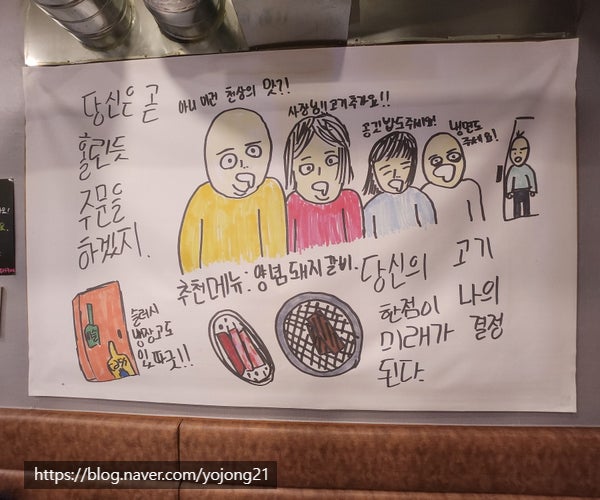 당신은 곧
홀린듯
주문을
하겠지.
아니 이런 천상의 맛?!
사장님!! 고기추가요!!
공깃밥도주세요!
냉면도
주세요!
추천메뉴: 양념돼지갈비.
슬러시
냉장고도
있따굿!!
당신의 고기
한점이 나의
미래가 결정
된다.
https://blog.naver.com/yojong21